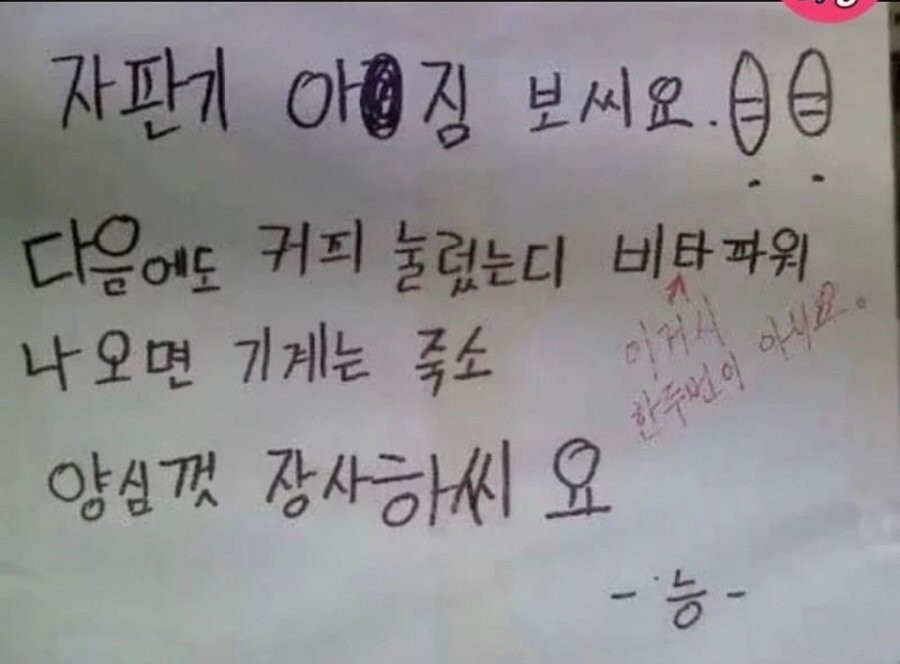 자판기 아짐 보씨요.!!
다음에도 커피 눌렀는디 비타파워
이거시
한두번이 아녀요.
나오면 기계는 죽소
양심껏 장사하씨요
- 능 -